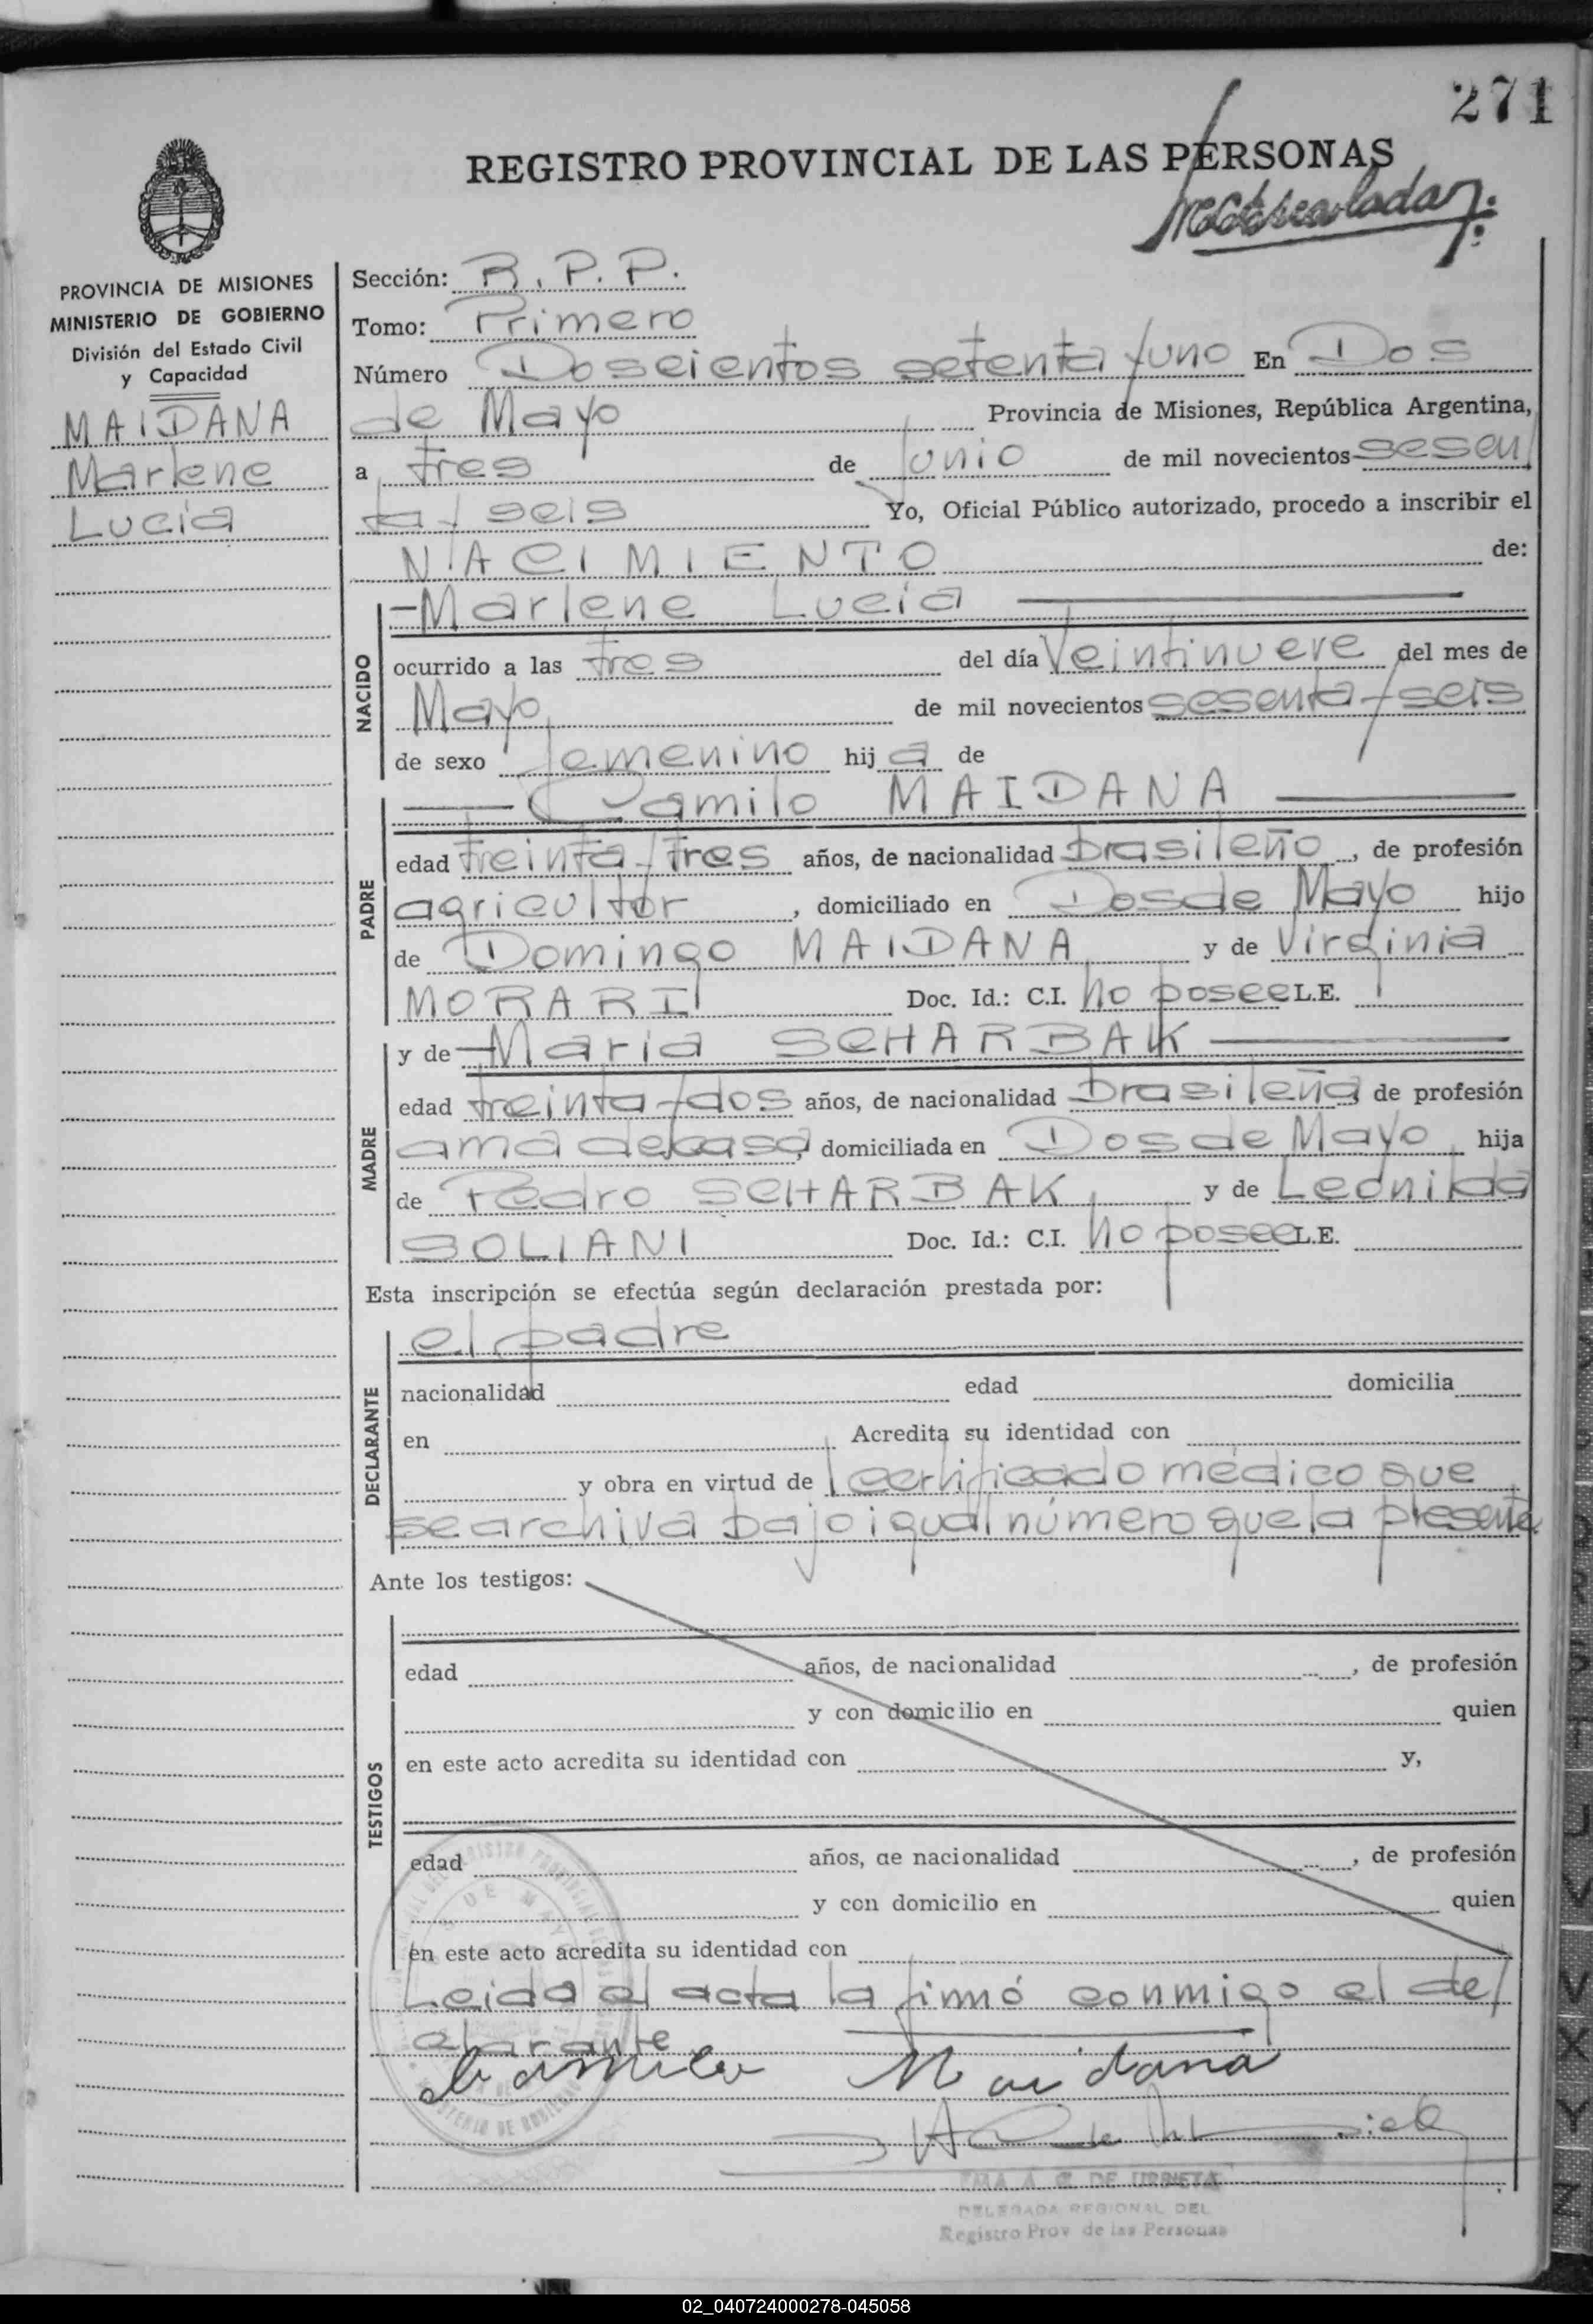 271
REGISTRO PROVINCIAL DE LAS PERSONAS
PROVINCIA DE MISIONES
MINISTERIO DE GOBIERNO
División del Estado Civil
y Capacidad
MAIDANA
Marlene
Lucia
Sección: R.P.P.
Tomo: Primero
Número Doscientos setenta y uno En Dos
de Mayo Provincia de Misiones, República Argentina,
a tres de Junio de mil novecientos sesen
ta y seis Yo, Oficial Público autorizado, procedo a inscribir el
NACIMIENTO de:
NACIDO
—Marlene Lucia—
ocurrido a las tres del día Veintinueve del mes de
Mayo de mil novecientos sesenta y seis
de sexo femenino hija de
PADRE
— Camilo MAIDANA —
edad treinta y tres años, de nacionalidad brasileño, de profesión
agricultor, domiciliado en Dos de Mayo hijo
de Domingo MAIDANA y de Virginia
MORARI Doc. Id.: C.I. No posee L.E.
MADRE
y de —Maria SCHARBAK—
edad treinta y dos años, de nacionalidad brasileña de profesión
ama de casa, domiciliada en Dos de Mayo hija
de Pedro SCHARBAK y de Leonilda
SOLIANI Doc. Id.: C.I. No posee L.E.
Esta inscripción se efectúa según declaración prestada por:
DECLARANTE
el padre
nacionalidad edad domicilia
en Acredita su identidad con
y obra en virtud de certificado médico que
se archiva bajo igual número que la presente
Ante los testigos:
TESTIGOS
edad años, de nacionalidad , de profesión
y con domicilio en quien
en este acto acredita su identidad con y,
edad años, de nacionalidad , de profesión
y con domicilio en quien
en este acto acredita su identidad con
Leida el acta la firmó conmigo el de
clarante
Camilo Maidana
EMA A. G. DE URRIETA
DELEGADA REGIONAL DEL
Registro Prov de las Personas
02_040724000278-045058